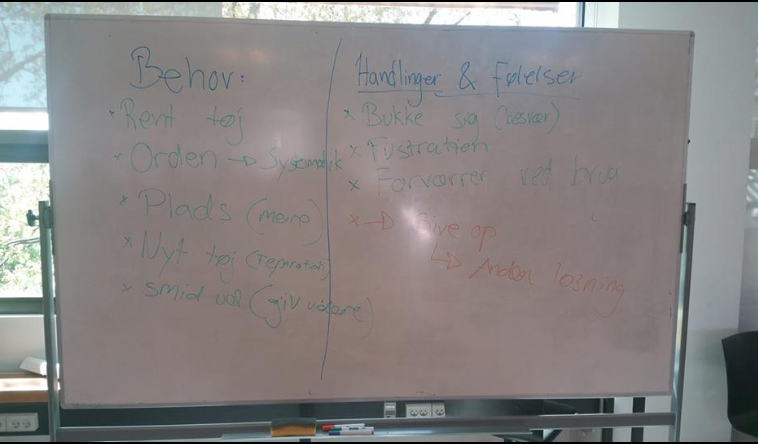 Behov:
* Rent tøj
* Orden → Systematik
* Plads (mere)
* Nyt tøj (reparation)
* Smid ud (giv videre)
Handlinger & Følelser
* Bukke sig (besvær)
* Fustration
* Forværrer ved brug
* → Give op
↳ Anden løsning